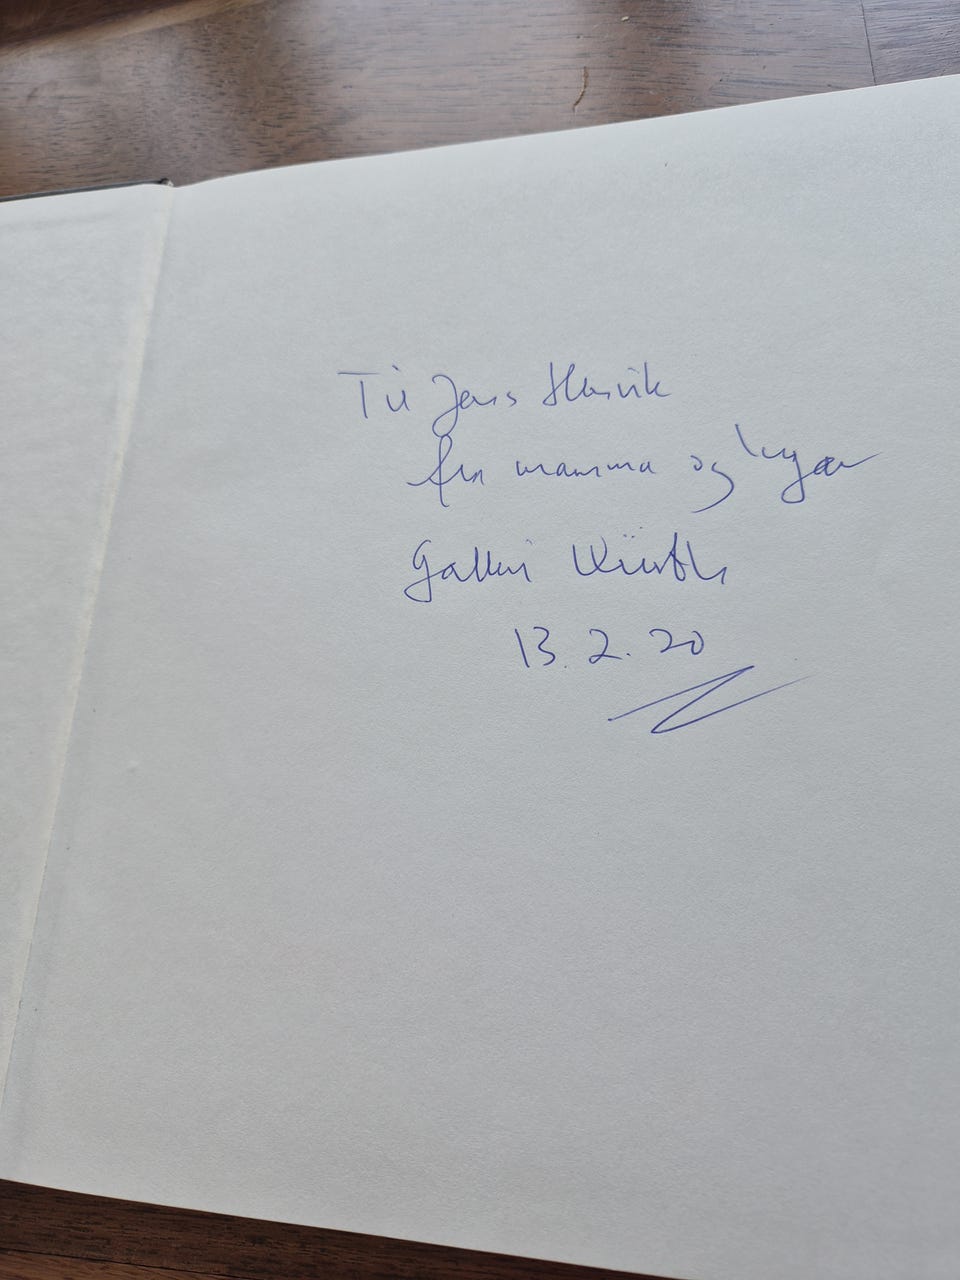 Til Jens Henrik
fra mamma og
Galleri Würth
13.2.20